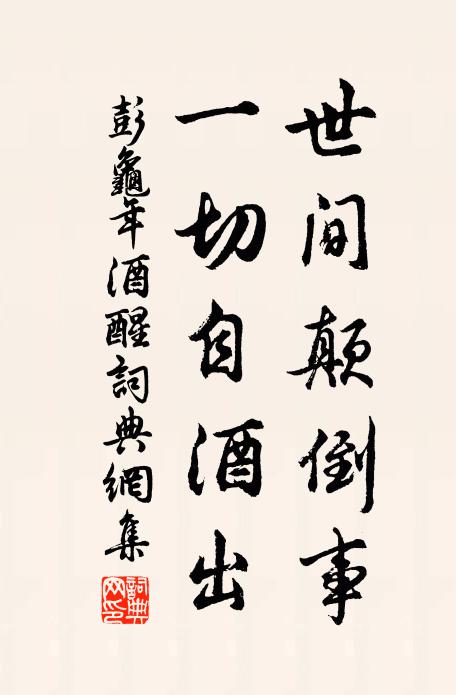 世间颠倒事
一切自酒出
彭龜年酒醒詞典網集
詞典網印